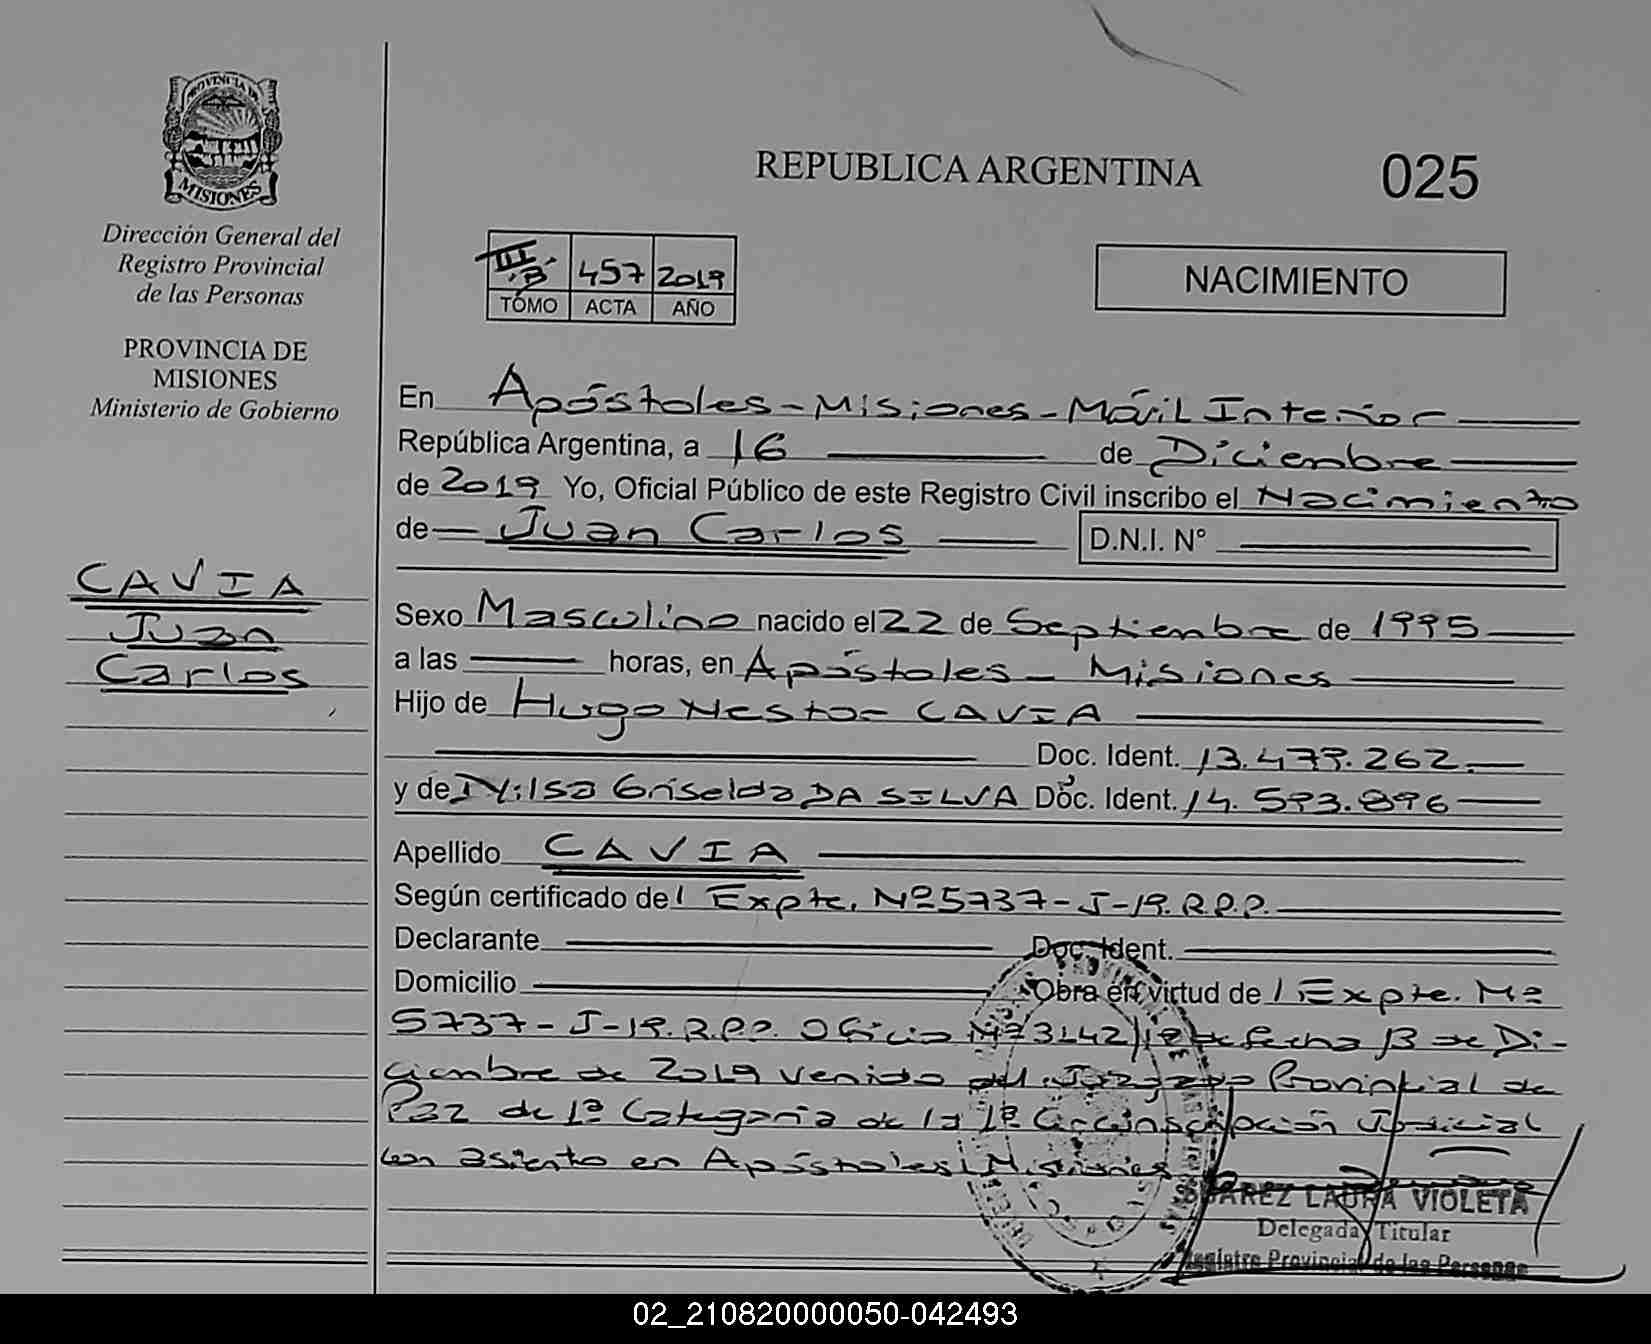 PROVINCIA DE
MISIONES
Dirección General del
Registro Provincial
de las Personas
PROVINCIA DE
MISIONES
Ministerio de Gobierno
CAVIA
Juan
Carlos
REPUBLICA ARGENTINA
025
III "B" 457 2019
TOMO ACTA AÑO
NACIMIENTO
En Apóstoles - Misiones - Móvil Interior
República Argentina, a 16 de Diciembre
de 2019 Yo, Oficial Público de este Registro Civil inscribo el Nacimiento
de Juan Carlos D.N.I. N°
Sexo Masculino nacido el 22 de Septiembre de 1995
a las horas, en Apóstoles - Misiones
Hijo de Hugo Nestor CAVIA
Doc. Ident. 13.479.262.
y de Nilsa Griselda DA SILVA Doc. Ident. 14.593.896
Apellido CAVIA
Según certificado del Expte. Nº 5737-J-19.R.P.P.
Declarante Doc. Ident.
Domicilio Obra en virtud del Expte. Nº
5737-J-19.R.P.P. Oficio Nº 3142/19 de fecha 13 de Di-
ciembre de 2019 venido del Juzgado Provincial de
Paz de 1ª Categoria de la 1ª Circunscripción Judicial
con asiento en Apóstoles, Misiones
SUAREZ LAURA VIOLETA
Delegada Titular
Registro Provincial de las Personas
02_210820000050-042493